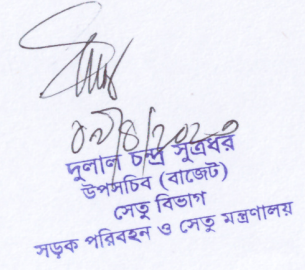 ০৯/৪/২০২০
দুলাল চন্দ্র সূত্রধর
উপসচিব (বাজেট)
সেতু বিভাগ
সড়ক পরিবহন ও সেতু মন্ত্রণালয়